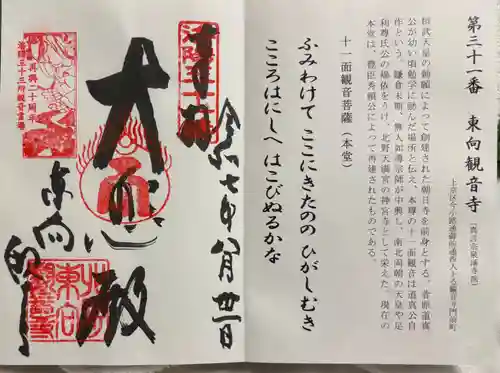 第三十一番　東向観音寺（真言宗泉涌寺派）
上京区今小路通御前通西入上る観音寺門前町
桓武天皇の勅願によって創建された朝日寺を前身とする。菅原道真
公が幼い頃勉学に励んだ場所と伝え、本尊の十一面観音は道真公自
作という。鎌倉末期、無人如導宗師が中興し、南北両朝の天皇や足
利尊氏公の帰依をうけ、北野天満宮の神宮寺として栄えた。現在の
本堂は、豊臣秀頼公によって再建されたものである。
十一面観音菩薩（本堂）
ふみわけて ここにきたのの ひがしむき
こころはにしへ はこびぬるかな
令和七年八月卅一日
奉拝
大悲殿
東向
再興二十周年
洛陽三十三所観音霊場